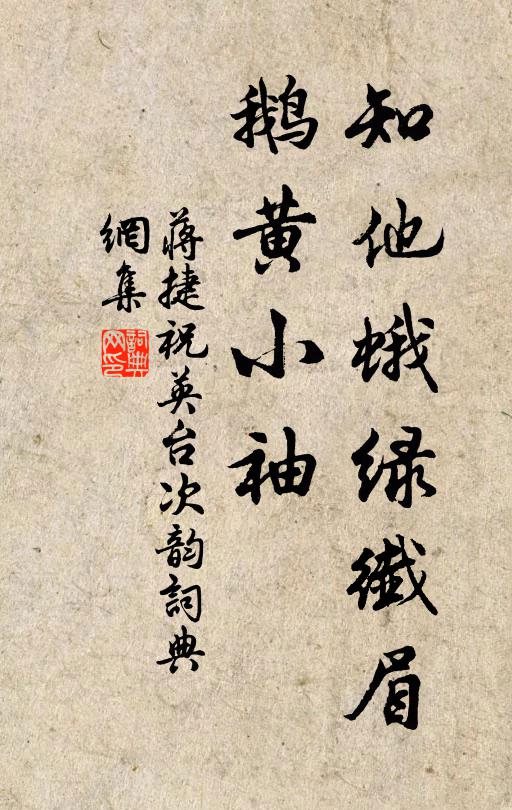 知他蛾绿纎眉
鹅黄小袖
蒋捷祝英台次韵詞典
網集
詞典
网印